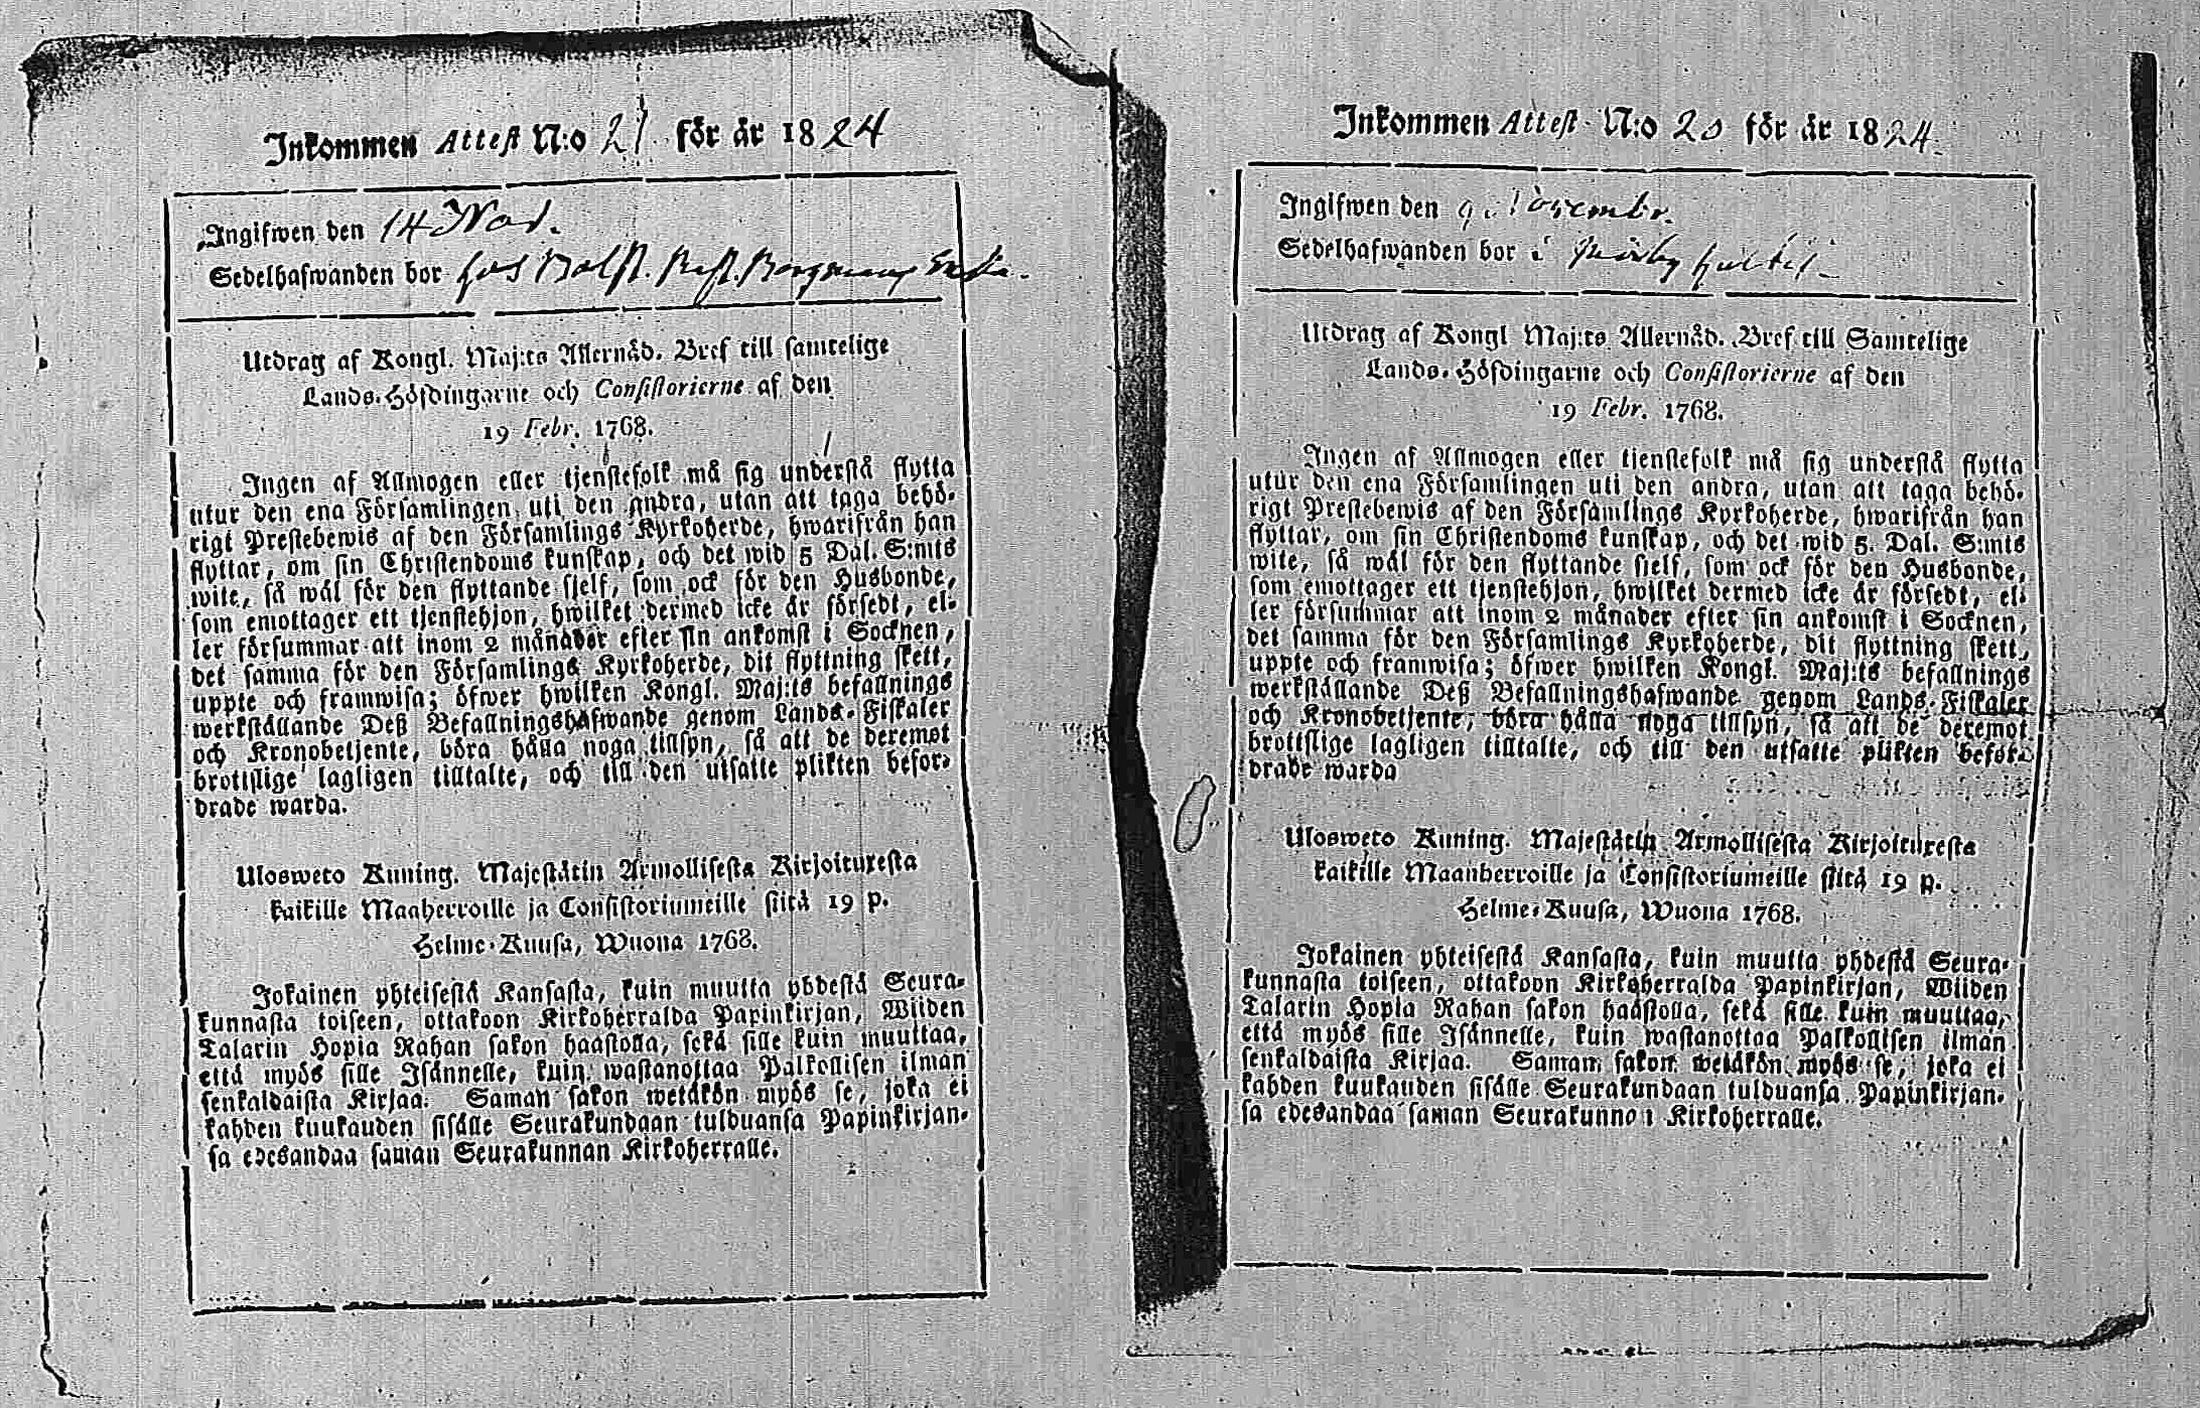 Inkommen Attest N:o 21 för år 1824
Ingifwen den 14 Nov.
Sedelhafwanden bor hos
Utdrag af Kongl. Maj:ts Allernåd. Bref till samtelige
Lands-Höfdingarne och Consistorierne af den
19 Febr. 1768.
Ingen af Allmogen eller tjenstefolk må sig understå flytta
utur den ena Församlingen uti den andra, utan att taga behö-
rigt Prestebewis af den Församlings Kyrkoherde, hwarifrån han
flyttar, om sin Christendoms kunskap, och det wid 5 Dal. S:mts
wite, så wäl för den flyttande sjelf, som ock för den Husbonde,
som emottager ett tjenstehjon, hwilket dermed icke är försedt, el-
ler försummar att inom 2 månader efter sin ankomst i Socknen,
det samma för den Församlings Kyrkoherde, dit flyttning skett,
uppte och framwisa; öfwer hwilken Kongl. Maj:ts befallnings
werkställande Deß Befallningshafwande genom Lands-Fiskaler
och Kronobetjente, böra hålla noga tillsyn, så att de deremot
brottslige lagligen tilltalte, och till den utsatte plikten befor-
drade warda.
Ulosweto Kuning. Majestätin Armollisesta Kirjoituxesta
kaikille Maanherroille ja Consistoriumeille siitä 19 p.
Helme-Kuusa, Wuona 1768.
Jokainen yhteisestä Kansasta, kuin muutta yhdestä Seura-
kunnasta toiseen, ottakoon Kirkoherralda Papinkirjan, Wiiden
Talarin Hopia Rahan sakon haastolla, sekä sille kuin muuttaa,
että myös sille Isännelle, kuin wastanottaa Palkollisen ilman
senkaldaista Kirjaa. Saman sakon wetäkön myös se, joka ei
kahden kuukauden sisälle Seurakundaan tulduansa Papinkirjan-
sa edesandaa saman Seurakunnan Kirkoherralle.
Inkommen Attest N:o 20 för år 1824.
Ingifwen den 9 Novembr.
Sedelhafwanden bor i
Utdrag af Kongl Maj:ts Allernåd. Bref till Samtelige
Lands-Höfdingarne och Consistorierne af den
19 Febr. 1768.
Ingen af Allmogen eller tjenstefolk må sig understå flytta
utur den ena Församlingen uti den andra, utan att taga behö-
rigt Prestebewis af den Församlings Kyrkoherde, hwarifrån han
flyttar, om sin Christendoms kunskap, och det wid 5. Dal. S:mts
wite, så wäl för den flyttande sjelf, som ock för den Husbonde,
som emottager ett tjenstehjon, hwilket dermed icke är försedt, el-
ler försummar att inom 2 månader efter sin ankomst i Socknen,
det samma för den Församlings Kyrkoherde, dit flyttning skett,
uppte och framwisa; öfwer hwilken Kongl. Maj:ts befallnings
werkställande Deß Befallningshafwande genom Lands-Fiskaler
och Kronobetjente, böra hålla noga tillsyn, så att de deremot
brottslige lagligen tilltalte, och till den utsatte plikten beför-
drade warda
Ulosweto Kuning. Majestätin Armollisesta Kirjoituxesta
kaikille Maanherroille ja Consistoriumeille siitä 19 p.
Helme-Kuusa, Wuona 1768.
Jokainen yhteisestä Kansasta, kuin muutta yhdestä Seura-
kunnasta toiseen, ottakoon Kirkoherralda Papinkirjan, Wiiden
Talarin Hopia Rahan sakon haastolla, sekä sille kuin muuttaa,
että myös sille Isännelle, kuin wastanottaa Palkollisen ilman
senkaldaista Kirjaa. Saman sakon wetäkön myös se, joka ei
kahden kuukauden sisälle Seurakundaan tulduansa Papinkirjan-
sa edesandaa saman Seurakunnan Kirkoherralle.